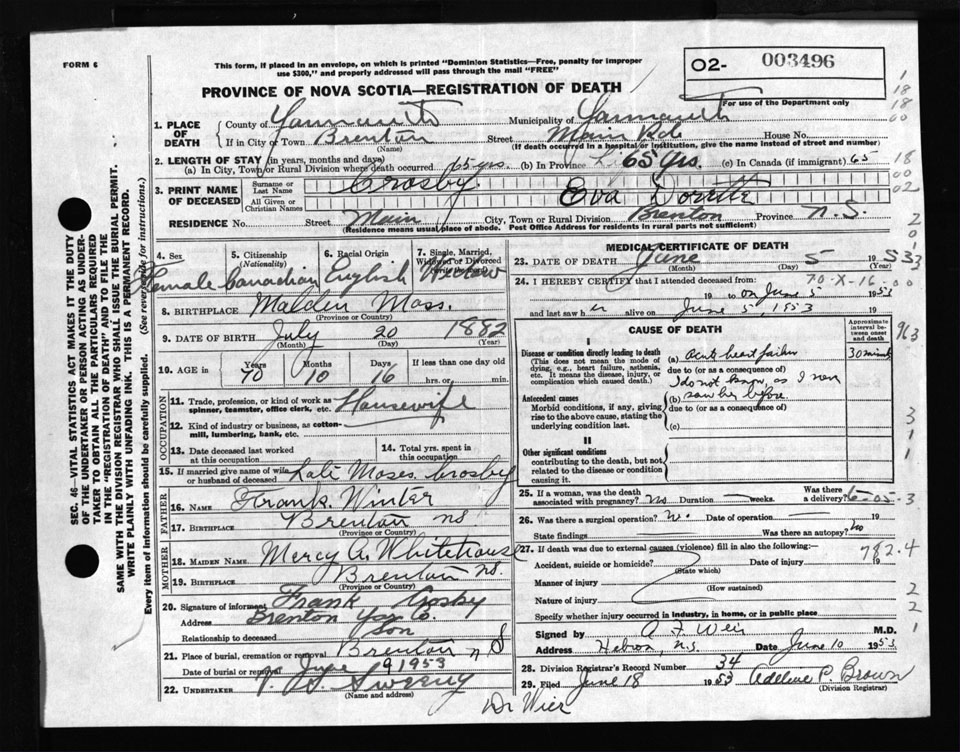 FORM 6
This form, if placed in an envelope, on which is printed "Dominion Statistics—Free, penalty for improper
use $300," and properly addressed will pass through the mail "FREE"
PROVINCE OF NOVA SCOTIA—REGISTRATION OF DEATH
02- 003496
For use of the Department only
1. PLACE OF DEATH
County of Yarmouth Municipality of Yarmouth
If in City or Town Brenton Street Main Rd. House No.
(Name) (If death occurred in a hospital or institution, give the name instead of street and number)
2. LENGTH OF STAY (in years, months and days)
(a) In City, Town or Rural Division where death occurred 65 yrs. (b) In Province 65 yrs. (c) In Canada (if immigrant) 65
3. PRINT NAME OF DECEASED
Surname or Last Name Crosby
All Given or Christian Names Eva
RESIDENCE No. Street Main City, Town or Rural Division Brenton Province N.S.
(Residence means usual place of abode. Post Office Address for residents in rural parts not sufficient)
4. Sex Female
5. Citizenship (Nationality) Canadian
6. Racial Origin English
7. Single, Married, Widowed or Divorced Widow
8. BIRTHPLACE Malden Mass.
(Province or Country)
9. DATE OF BIRTH July 20 1882
(Month) (Day) (Year)
10. AGE in Years 70 Months 10 Days 16 If less than one day old hrs. or min.
OCCUPATION
11. Trade, profession, or kind of work as spinner, teamster, office clerk, etc. Housewife
12. Kind of industry or business, as cotton-mill, lumbering, bank, etc.
13. Date deceased last worked at this occupation
14. Total yrs. spent in this occupation
15. If married give name of wife or husband of deceased Late Moses Crosby
FATHER
16. NAME Frank Winter
17. BIRTHPLACE Brenton NS
(Province or Country)
MOTHER
18. MAIDEN NAME Mercy A. Whitehouse
19. BIRTHPLACE Brenton NS.
(Province or Country)
20. Signature of informant Frank Crosby
Address Brenton Yar. Co.
Relationship to deceased Son
21. Place of burial, cremation or removal Brenton N S
Date of burial or removal June 9 1953
22. UNDERTAKER Sweeny
(Name and address)
MEDICAL CERTIFICATE OF DEATH
23. DATE OF DEATH June 5 1953
(Month) (Day) (Year)
24. I HEREBY CERTIFY that I attended deceased from: 70-X-16-
19 to on June 5 1953
and last saw her alive on June 5, 1953
CAUSE OF DEATH
Approximate interval between onset and death
I
Disease or condition directly leading to death
(This does not mean the mode of dying, e.g., heart failure, asthenia, etc. It means the disease, injury, or complication which caused death.)
(a) acute heart failure 30 minutes
due to (or as a consequence of)
I do not know, as I never
(b) saw her before.
Antecedent causes
Morbid conditions, if any, giving rise to the above cause, stating the underlying condition last.
due to (or as a consequence of)
(c)
II
Other significant conditions
contributing to the death, but not related to the disease or condition causing it.
25. If a woman, was the death associated with pregnancy? No Duration — weeks. Was there a delivery? 6-05-3
26. Was there a surgical operation? No. Date of operation — 19
State findings Was there an autopsy? No
27. If death was due to external causes (violence) fill in also the following:—
782.4
Accident, suicide or homicide? Date of injury 19
(State which)
Manner of injury
(How sustained)
Nature of injury
Specify whether injury occurred in industry, in home, or in public place
Signed by A F Weir M.D.
Address Hebron, N.S. Date June 10 1953
28. Division Registrar's Record Number 34
29. Filed June 18 1953 Adeline P. Brown
(Division Registrar)
Dr Weir
SEC. 46—VITAL STATISTICS ACT MAKES IT THE DUTY
OF THE UNDERTAKER OR PERSON ACTING AS UNDER-
TAKER TO OBTAIN ALL THE PARTICULARS REQUIRED
IN THE "REGISTRATION OF DEATH" AND TO FILE THE
SAME WITH THE DIVISION REGISTRAR WHO SHALL ISSUE THE BURIAL PERMIT.
WRITE PLAINLY WITH UNFADING INK. THIS IS A PERMANENT RECORD.
Every item of information should be carefully supplied. (See reverse side for instructions.)
1
18
18
00
18
00
02
2
0
1
3
00
963
3
1
1
2
2
1